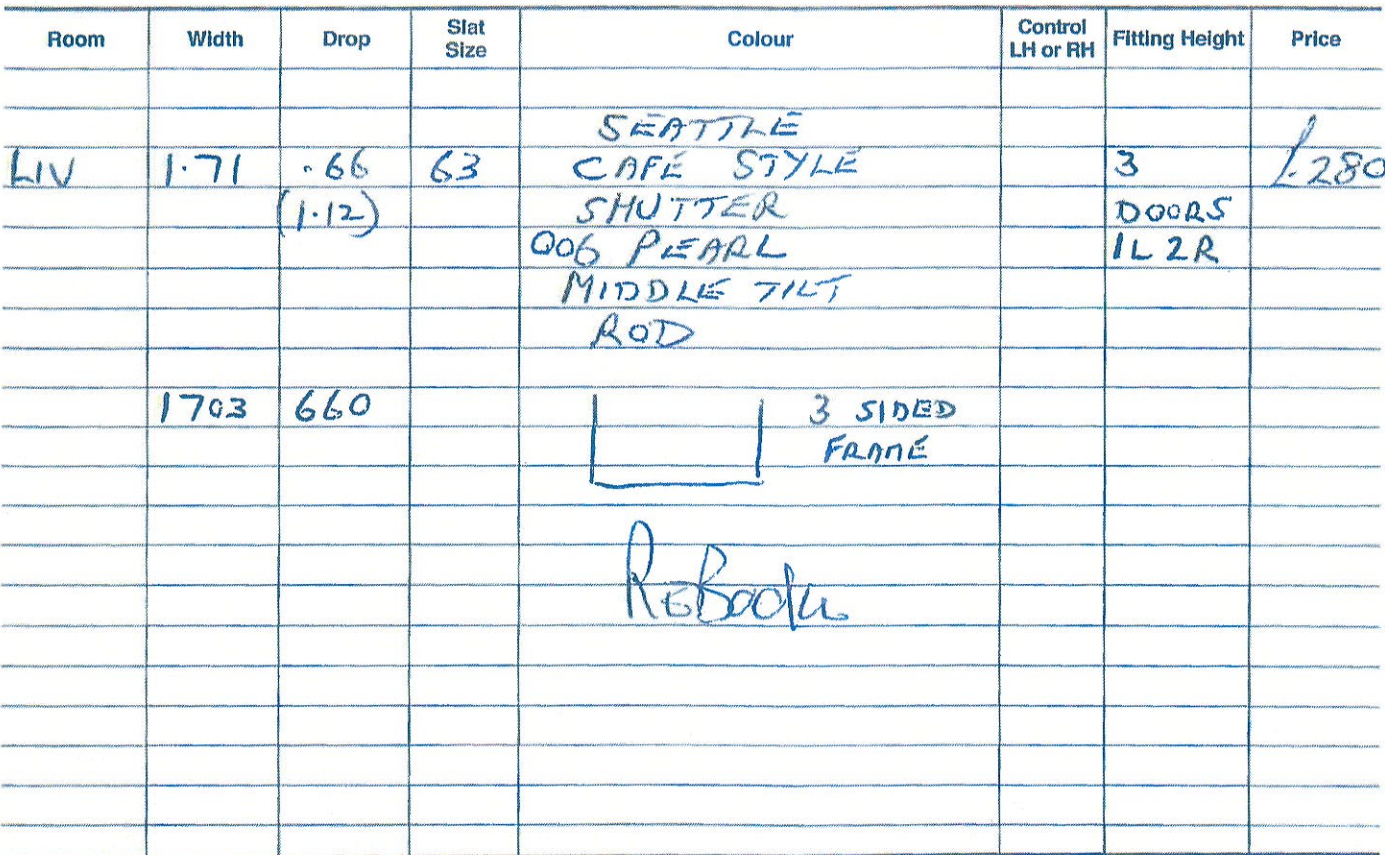 Room Width Drop Slat Size Colour Control LH or RH Fitting Height Price
SEATTLE
LIV 1.71 .66 63 CAFE STYLE 3 £280
(1.12) SHUTTER DOORS
006 PEARL 1L 2R
MIDDLE TILT
ROD
1703 660 3 SIDED
FRAME
ReBook